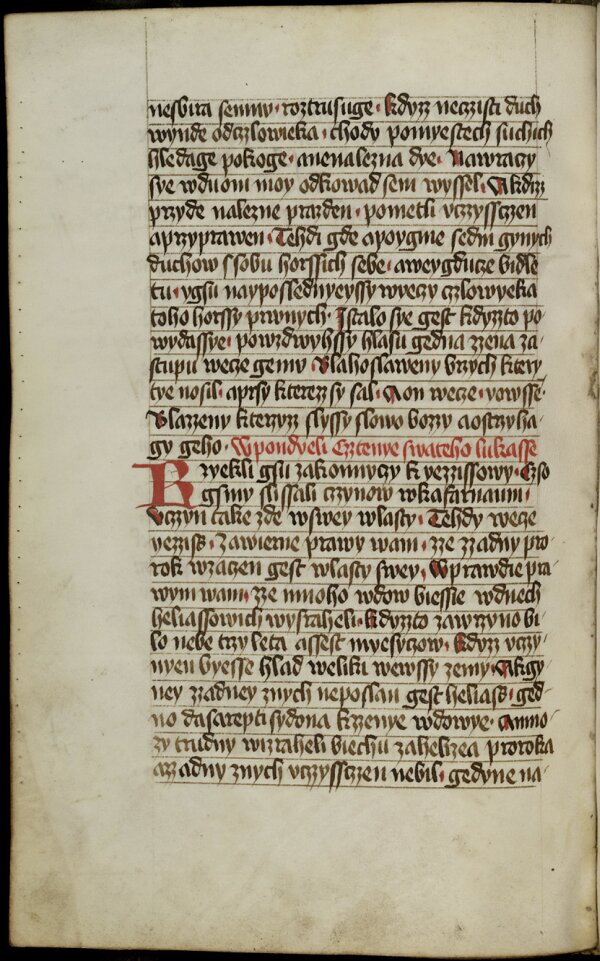 nesbira semnu · roztrusuge · kdyzz neczisti duch
wynde odczlowieka · chody pomyestech suchich
hledage pokoge · anenalezna dye · Nawraczy
sye wduom moy odkowad sem wyssel · A kdizz
przyde nalezne prazden · pometli vczyssczen
aprzyprawen · Tehdi gde apoygme sedm gynych
duchow ssobu horssich sebe · aweyguducze bidle
tu · ygsu nayposlednyeyssy wieczy czlowyeka
toho horssy prwnych · Istalo sye gest kdyzto po
wydassye · powzdwyhssy hlasu gedna zzena za
stupu wece gemu Blahoslaweny brzych ktery
tye nosil · aprsy kterezz sy sal · A on wece · vowsse
Blazzeny kterzyzz slyssy slowo bozzy aostrzyha
gy geho · Wpondyeli Cztenye swateho lukasse
Rzyekli gsu zakonnyczy k yezzissowy · Czso
gsmy slissali czynow wkafarnaum ·
Vczyn take zde wswey wlasty · Tehdy wece
yezziss · Zawierne prawy wam · zze zzadny pro
rok wzaczen gest wlasty swey · Wprawdie pra
wym wam · zze mnoho wdow biessie wdnech
heliassowich wysraheli · kdyzto zawrzyno bi
lo nebe trzy leta assest myesyczow · kdyzz vczy
nyen byesse hlad weliki wewssy zemy · Akgy
ney zzadney znych neposlan gest heliass · ged
no dasarepti sydona kzzenye wdowye · Amno
zy trudny wizraheli biechu zahelizea proroka
azzadny znych vczyssczen nebil · gedyne na